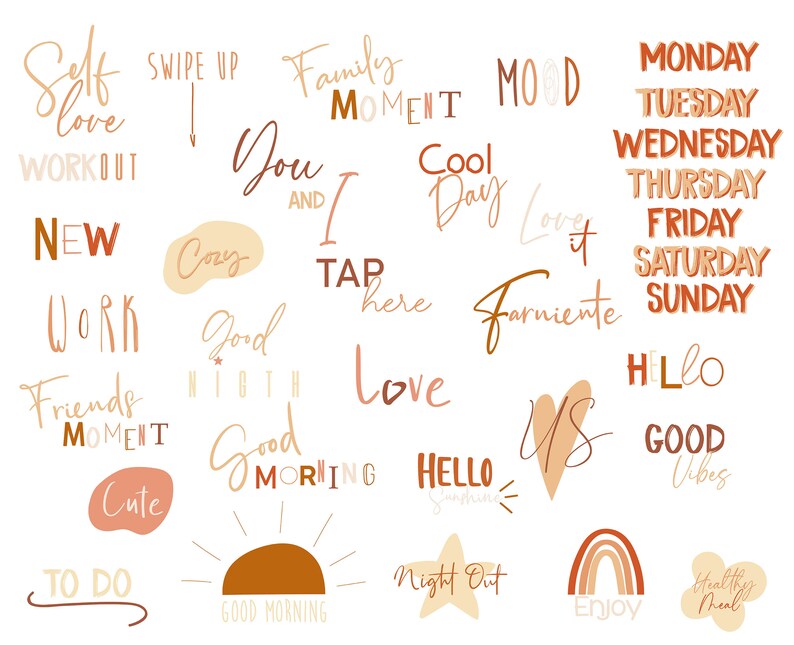 Self
love
SWIPE UP
Family
MOMENT
MOOD
MONDAY
TUESDAY
WEDNESDAY
THURSDAY
FRIDAY
SATURDAY
SUNDAY
WORKOUT
You
AND I
Cool
Day
Love
it
NEW
Cozy
TAP
here
Farniente
WORK
Good
NIGTH
Love
HELLO
Friends
MOMENT
Good
MORNING
US
GOOD
Vibes
HELLO
Sunshine
Cute
TO DO
GOOD MORNING
Night Out
Enjoy
Healthy
Meal